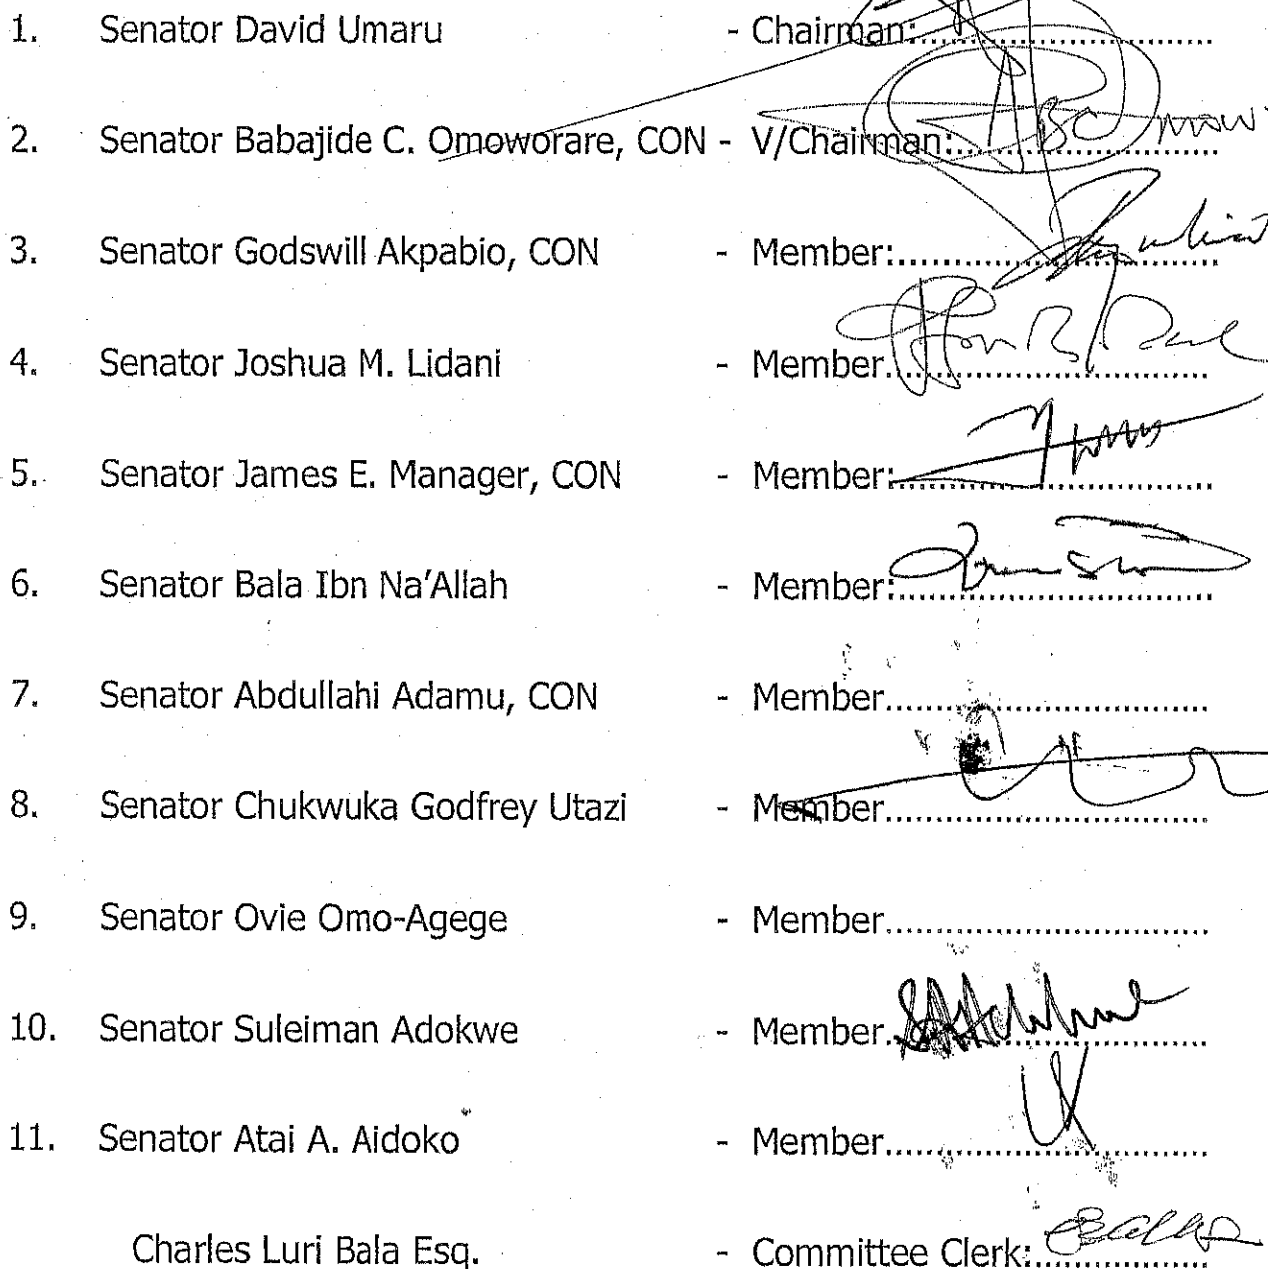 1. Senator David Umaru - Chairman:........................................
2. Senator Babajide C. Omoworare, CON - V/Chairman:...................................
3. Senator Godswill Akpabio, CON - Member:...........................................
4. Senator Joshua M. Lidani - Member...........................................
5. Senator James E. Manager, CON - Member:...........................................
6. Senator Bala Ibn Na'Allah - Member:...........................................
7. Senator Abdullahi Adamu, CON - Member...........................................
8. Senator Chukwuka Godfrey Utazi - Member...........................................
9. Senator Ovie Omo-Agege - Member...........................................
10. Senator Suleiman Adokwe - Member...........................................
11. Senator Atai A. Aidoko - Member...........................................
Charles Luri Bala Esq. - Committee Clerk:........................